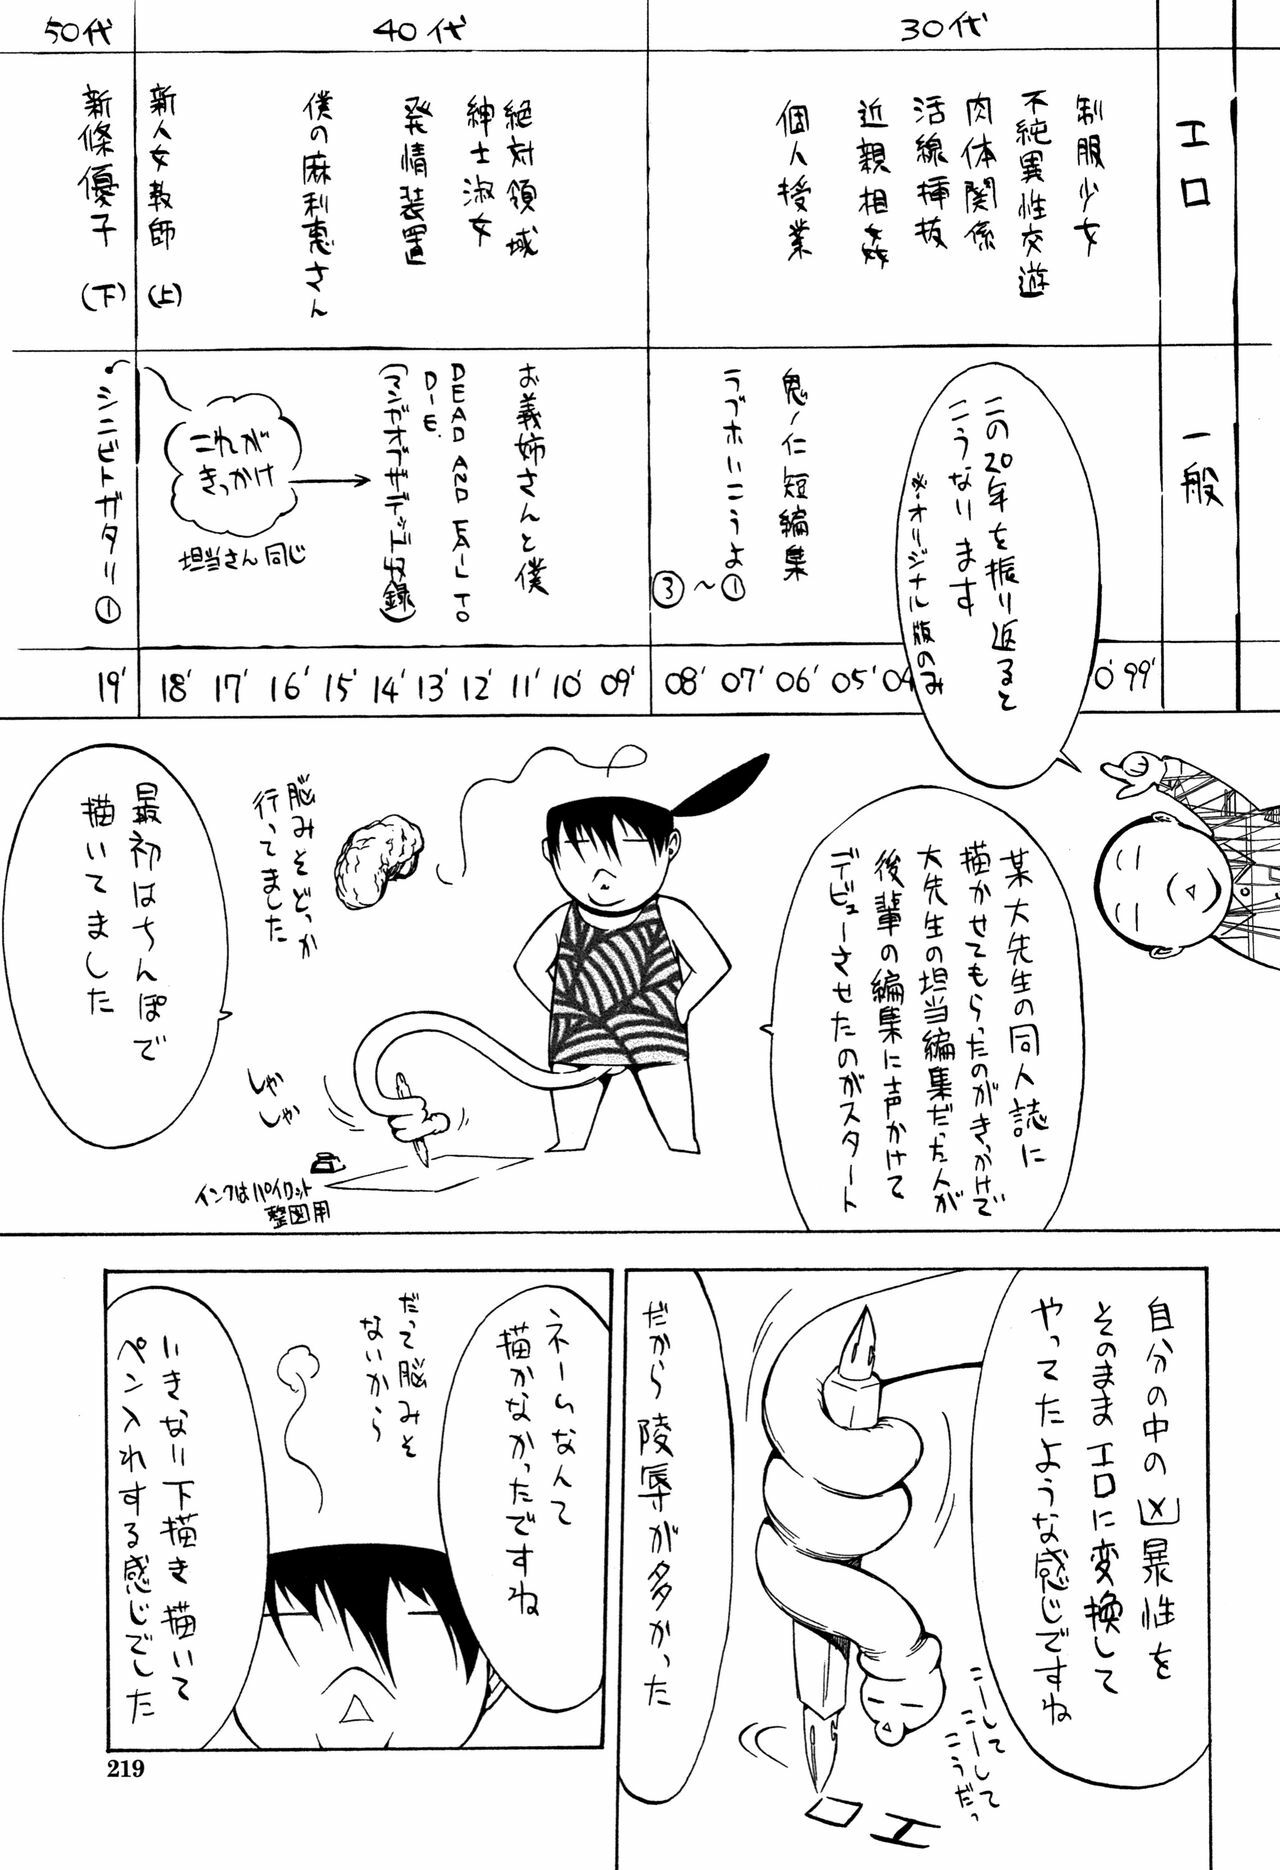 30代
40代
50代
エロ
制服少女
不純異性交遊
肉体関係
活線挿抜
近親相姦
個人授業
絶対領域
紳士淑女
発情装置
僕の麻利恵さん
新人女教師(上)
新條優子(下)
一般
鬼ノ仁短編集
ラブホいこうよ①
～③
お義姉さんと僕
DEAD AND FAIL TO
DIE.
(マンガオブザデッド収録)
これが
きっかけ
担当さん同じ
シニビトガタリ①
99'
0'
04
05'
06'
07'
08'
09'
10'
11'
12'
13'
14'
15'
16'
17'
18'
19'
この20年を振り返ると
こうなります
※オリジナル版のみ
某大先生の同人誌に
描かせてもらったのがきっかけで
大先生の担当編集だった人が
後輩の編集に声かけて
デビューさせたのがスタート
脳みそどっか
行ってました
最初はちんぽで
描いてました
しゃか
しゃか
インクはパイロット
製図用
自分の中の凶暴性を
そのままエロに変換して
やってたような感じですね
こーして
こーして
こうだっ
エロ
だから陵辱が多かった
ネームなんて
描かなかったですね
だって脳みそ
ないから
いきなり下描き描いて
ペン入れする感じでした
219